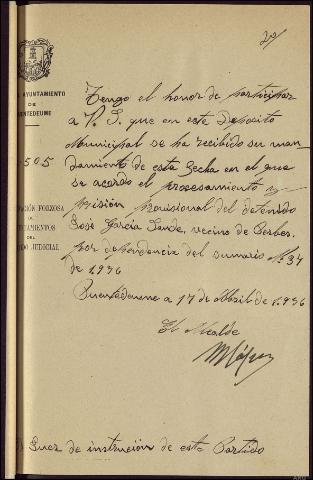 20
AYUNTAMIENTO
DE
NTEDEUME
505
ACIÓN FORZOSA
DE
NTAMIENTOS
DEL
DO JUDICIAL
Tengo el honor de participar
a V. S. que en este Depósito
Municipal se ha recibido su man-
damiento de esta fecha en el que
se acordó el procesamiento y
prisión provisional del detenido
José García Sande, vecino de
por dependencia del sumario Nº 37
de 1936
Puentedeume a 17 de Abril de 1936
El Alcalde
MLópez
Juez de instrucción de este Partido